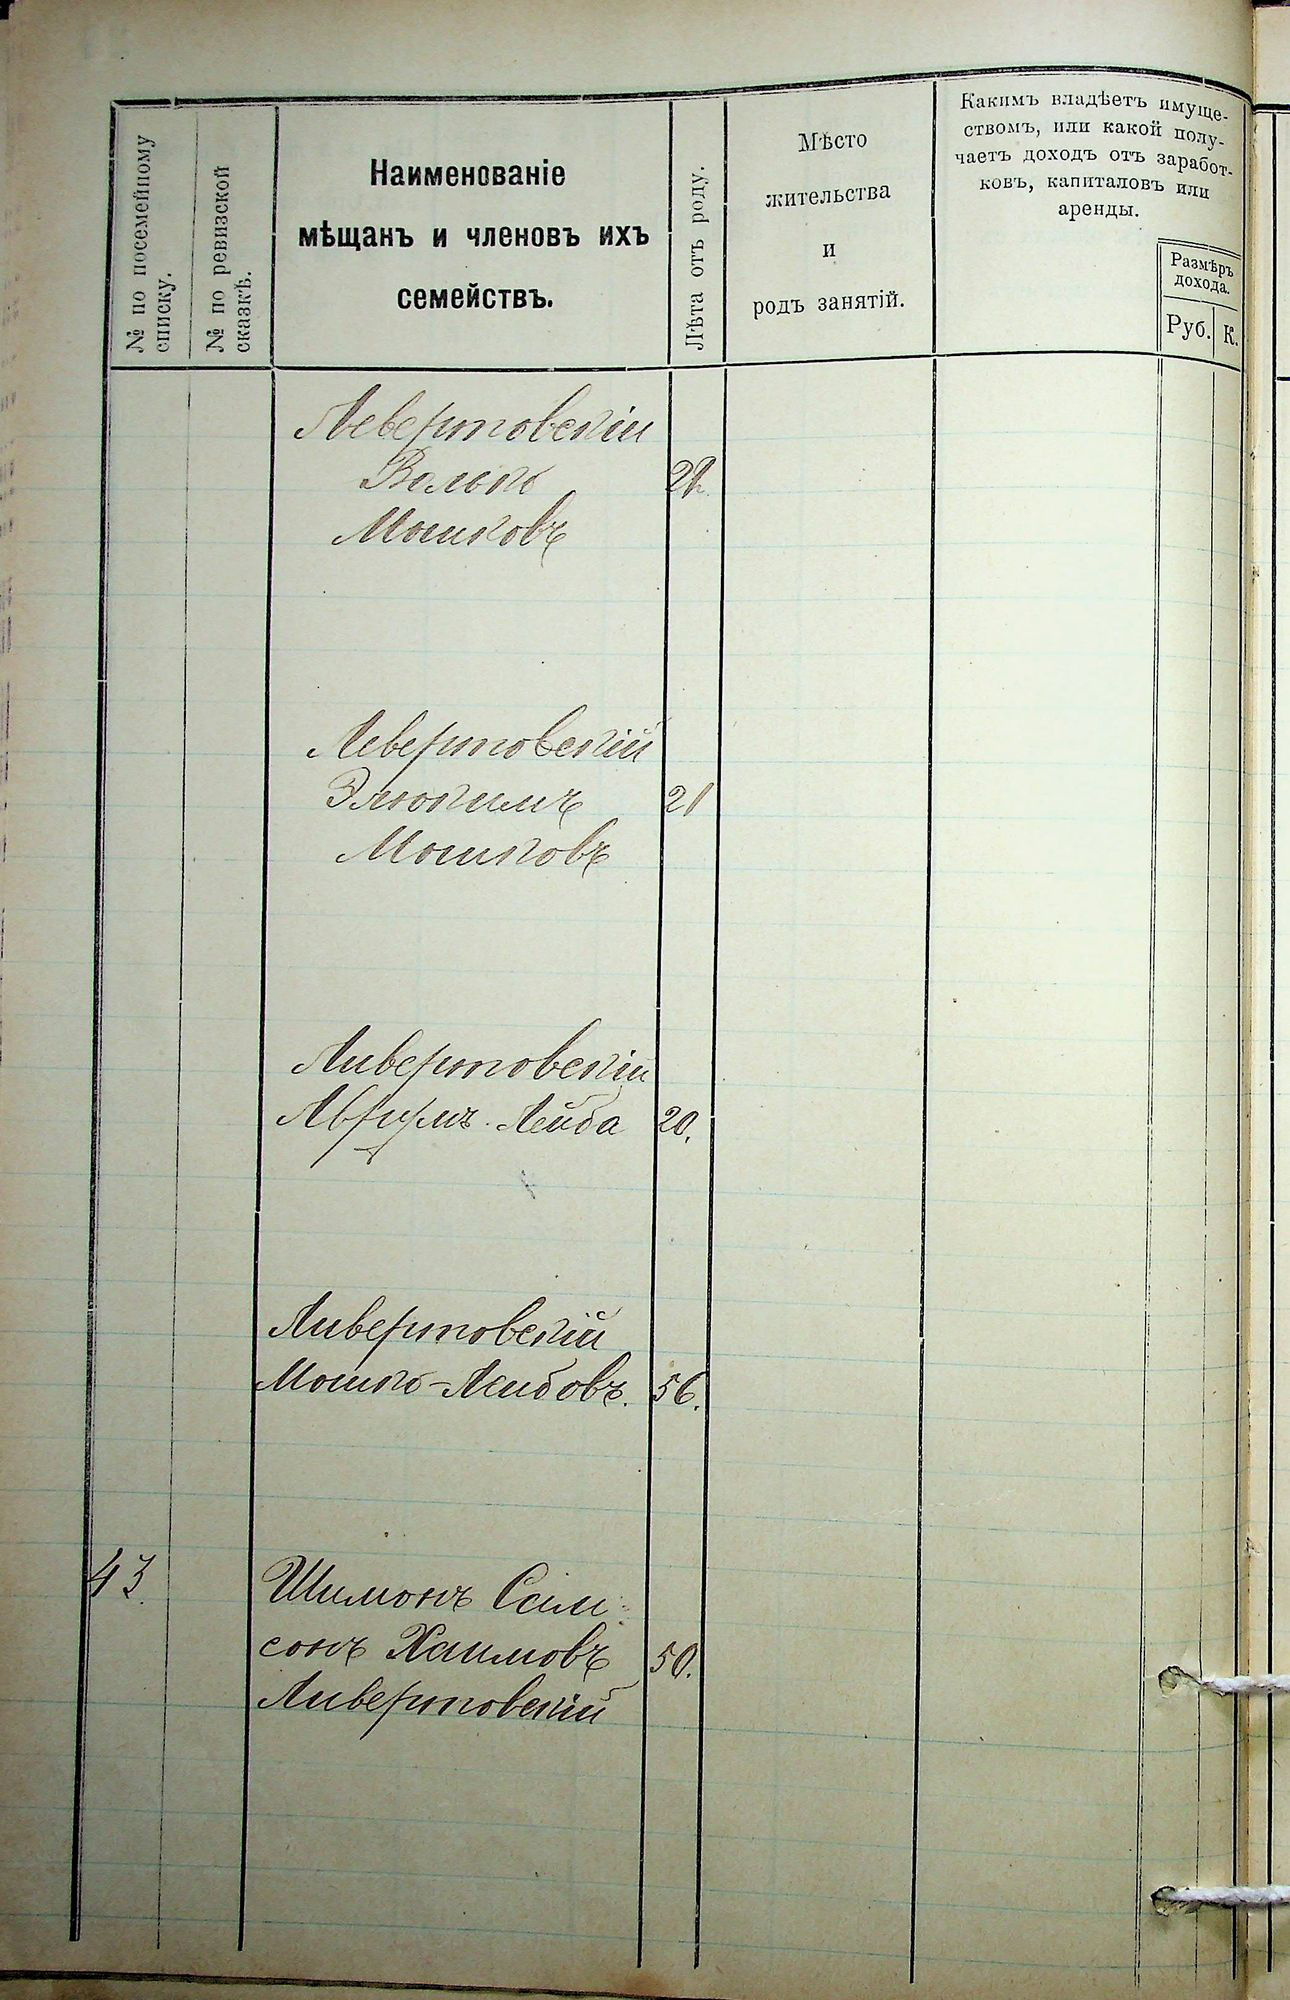 № по посемейному
списку.
№ по ревизской
сказкѣ.
Наименованіе
мѣщанъ и членовъ ихъ
семействъ.
Лѣта отъ роду.
Мѣсто
жительства
и
родъ занятій.
Какимъ владѣетъ имуще-
ствомъ, или какой полу-
чаетъ доходъ отъ заработ-
ковъ, капиталовъ или
аренды.
Размѣръ
дохода.
Руб. К.
Левертовскіи
Волько
Мошковъ
Левертовскій
Элюкимъ 21
Мошковъ
Ливертовскій
Аврумъ-Лейба 20.
Ливертовскій
Мошко-Леибовъ. 56.
43. Шимонъ Сам
сонъ Хаимовъ 50.
Ливертовскій